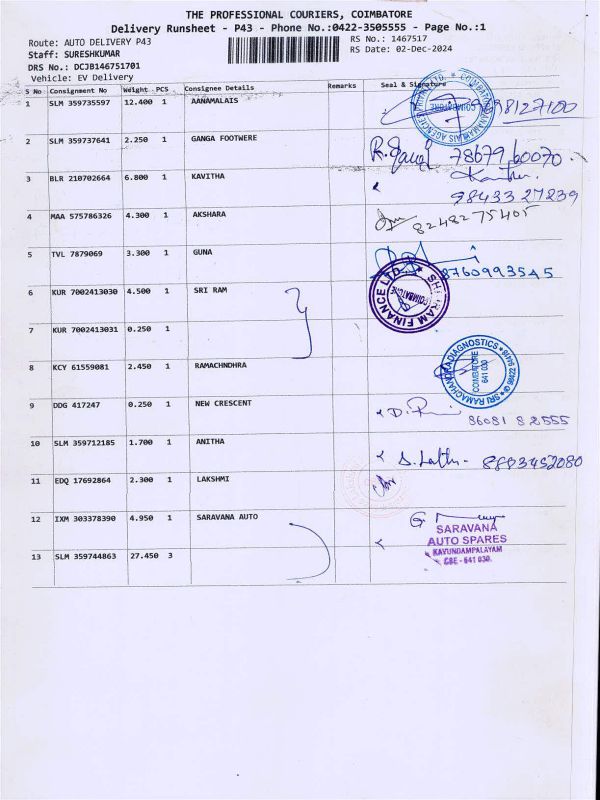 THE PROFESSIONAL COURIERS, COIMBATORE
Delivery Runsheet - P43 - Phone No.:0422-3505555 - Page No.:1
Route: AUTO DELIVERY P43
RS No.: 1467517
Staff: SURESHKUMAR
RS Date: 02-Dec-2024
DRS No.: DCJB146751701
Vehicle: EV Delivery
S No Consignment No Weight PCS Consignee Details Remarks Seal & Signature
1 SLM 359735597 12.400 1 AANAMALAIS 98127100
2 SLM 359737641 2.250 1 GANGA FOOTWERE 78679 60070
3 BLR 210702664 6.800 1 KAVITHA 98433 27239
4 MAA 575786326 4.300 1 AKSHARA 8248275405
5 TVL 7879069 3.300 1 GUNA 8760993545
6 KUR 7002413030 4.500 1 SRI RAM SHRIRAM FINANCE LTD. COIMBATORE
7 KUR 7002413031 0.250 1
8 KCY 61559081 2.450 1 RAMACHNDHRA SRI RAMACHANDRA DIAGNOSTICS COIMBATORE 641 030
9 DDG 417247 0.250 1 NEW CRESCENT 86081 82555
10 SLM 359712185 1.700 1 ANITHA 8803452080
11 EDQ 17692864 2.300 1 LAKSHMI
12 IXM 303378390 4.950 1 SARAVANA AUTO
SARAVANA
AUTO SPARES
KAVUNDAMPALAYAM
CBE - 641 030.
13 SLM 359744863 27.450 3